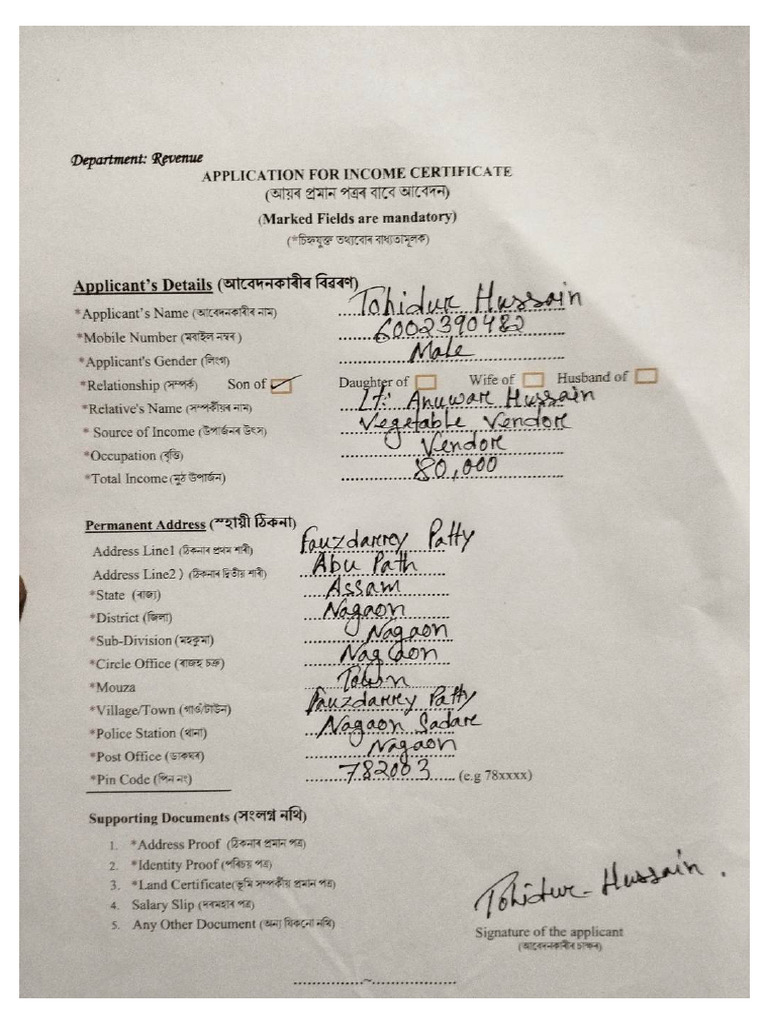 Department: Revenue
APPLICATION FOR INCOME CERTIFICATE
(আয়ৰ প্ৰমান পত্ৰৰ বাবে আবেদন)
(Marked Fields are mandatory)
(*চিহ্নযুক্ত তথ্যবোৰ বাধ্যতামূলক)
Applicant's Details (আবেদনকাৰীৰ বিৱৰণ)
*Applicant's Name (আবেদনকাৰীৰ নাম) Tohidur Hussain
*Mobile Number (মবাইল নম্বৰ ) 6002390482
*Applicant's Gender (লিংগ) Male
*Relationship (সম্পৰ্ক) Son of Daughter of Wife of Husband of
*Relative's Name (সম্পৰ্কীয়ৰ নাম) Lt: Anuwar Hussain
* Source of Income (উপাৰ্জনৰ উৎস) Vegetable Vendore
*Occupation (বৃত্তি) Vendore
*Total Income (মুঠ উপাৰ্জন) 80,000
Permanent Address (স্হায়ী ঠিকনা)
Address Line1 (ঠিকনাৰ প্ৰথম শাৰী) Fauzdarrey Patty
Address Line2 ) (ঠিকনাৰ দ্বিতীয় শাৰী) Abu Path
*State (ৰাজ্য) Assam
*District (জিলা) Nagaon
*Sub-Division (মহকুমা) Nagaon
*Circle Office (ৰাজহ চক্ৰ) Nagaon
*Mouza Town
*Village/Town (গাওঁ/টাউন) Fauzdarrey Patty
*Police Station (থানা) Nagaon Sadare
*Post Office (ডাকঘৰ) Nagaon
*Pin Code (পিন নং) 782003 (e.g 78xxxx)
Supporting Documents (সংলগ্ন নথি)
1. *Address Proof (ঠিকনাৰ প্ৰমান পত্ৰ)
2. *Identity Proof (পৰিচয় পত্ৰ)
3. *Land Certificate(ভূমি সম্পৰ্কীয় প্ৰমান পত্ৰ)
4. Salary Slip (দৰমহাৰ পত্ৰ)
5. Any Other Document (অন্য যিকনো নথি)
Tohidur Hussain.
Signature of the applicant
(আবেদনকাৰীৰ চাক্ষৰ)